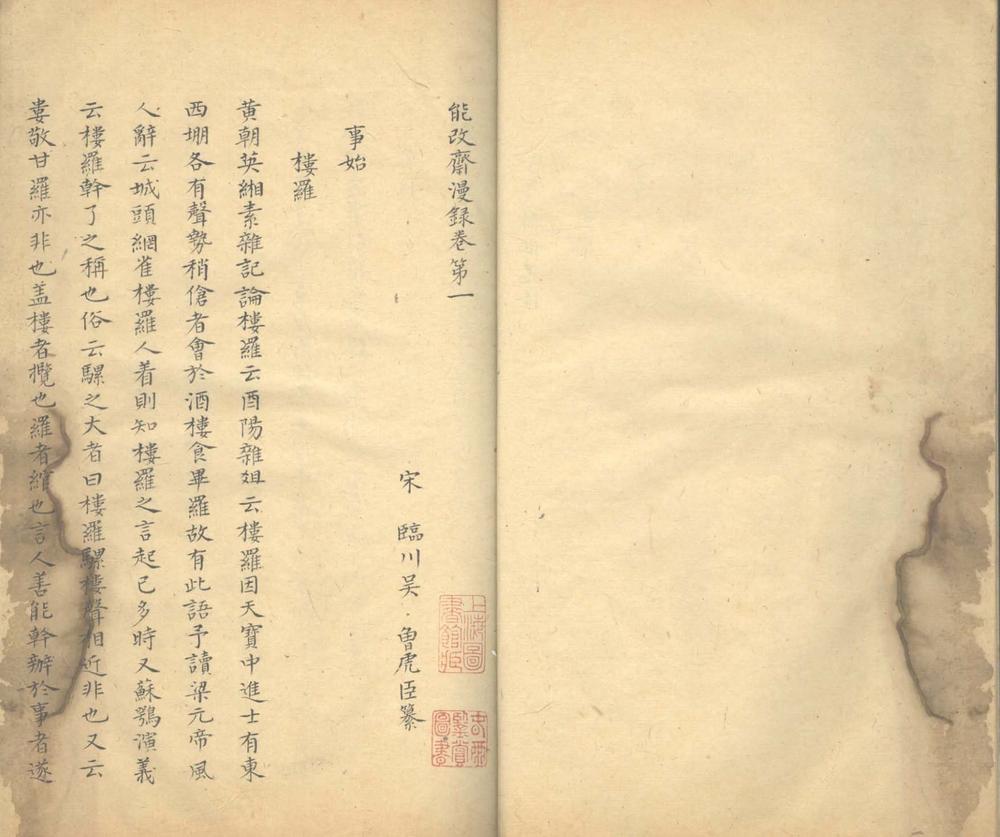 能改齋漫録卷第一
宋 臨川吴 魯虎臣纂
事始
樓羅
黄朝英緗素雜記論樓羅云酉陽雜俎云樓羅因天寶中進士有東
西堋各有聲勢稍傖者會於酒樓食畢羅故有此語予讀梁元帝風
人辭云城頭網雀樓羅人着則知樓羅之言起已多時又蘇鶚演義
云樓羅幹了之稱也俗云騾之大者曰樓羅騾樓聲相近非也又云
婁敬甘羅亦非也盖樓者攬也羅者綰也言人善能幹辦於事者遂
上海圖書館藏
鑒賞圖書